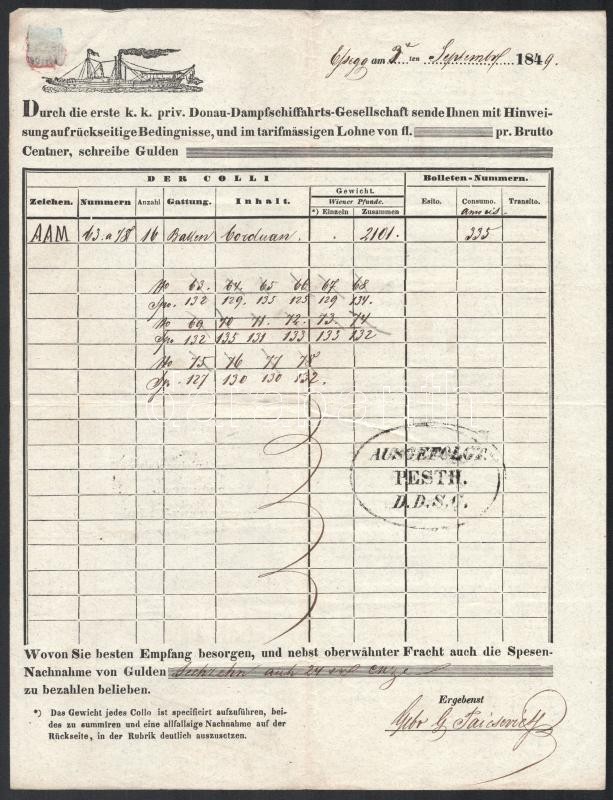 Essegg am 3ten September 1849.
Durch die erste k. k. priv. Donau-Dampfschiffahrts-Gesellschaft sende Ihnen mit Hinwei-
sung auf rückseitige Bedingnisse, und im tarifmässigen Lohne von fl. pr. Brutto
Centner, schreibe Gulden
DER COLLI Bolleten-Nummern.
Zeichen. Nummern Anzahl Gattung. Inhalt. Gewicht. Esito. Consumo. Transito.
Wiener Pfunde.
*) Einzeln Zusammen
AAM 63. a 78 16 Ballen Corduan. 2101. 335
No 63. 64. 65 66 67 68
Spo. 132 129. 135 125 129 134.
No 69 70 71. 72. 73. 74
Spo. 132 135 131 133 133 132
No 75 76 77 78
Sp. 127 130 130 132.
AUSGEFOLGT.
PESTH.
D.D.S.G.
Wovon Sie besten Empfang besorgen, und nebst oberwähnter Fracht auch die Spesen-
Nachnahme von Gulden Sechzehn auch 24
zu bezahlen belieben.
*) Das Gewicht jedes Collo ist specificirt aufzuführen, bei-
des zu summiren und eine allfallsige Nachnahme auf der
Rückseite, in der Rubrik deutlich auszusetzen.
Ergebenst
Gebr